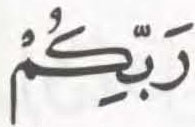 رَبِّكُمْ